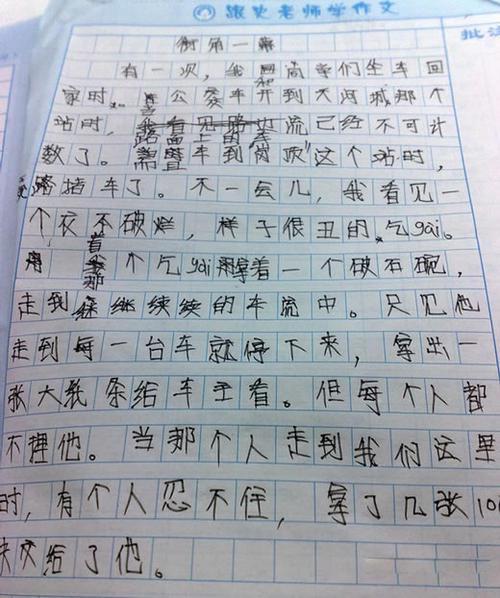 跟火老师学作文
批注
街角一幕
有一次,我和同学们坐车回
家时,当公交车开到天河城那个
站时,路面上的车流已经不可计
数了。当车到岗顶这个站时,
路堵车了。不一会儿,我看见一
个衣不破烂,样子很丑的乞gai。
那个乞gai拿着一个破石碗,
走到继继续续的车流中。只见他
走到每一台车就停下来,拿出一
张大纸条给车主看。但每个人都
不理他。当那个人走到我们这里
时,有个人忍不住,拿了几张10
块交给了他。